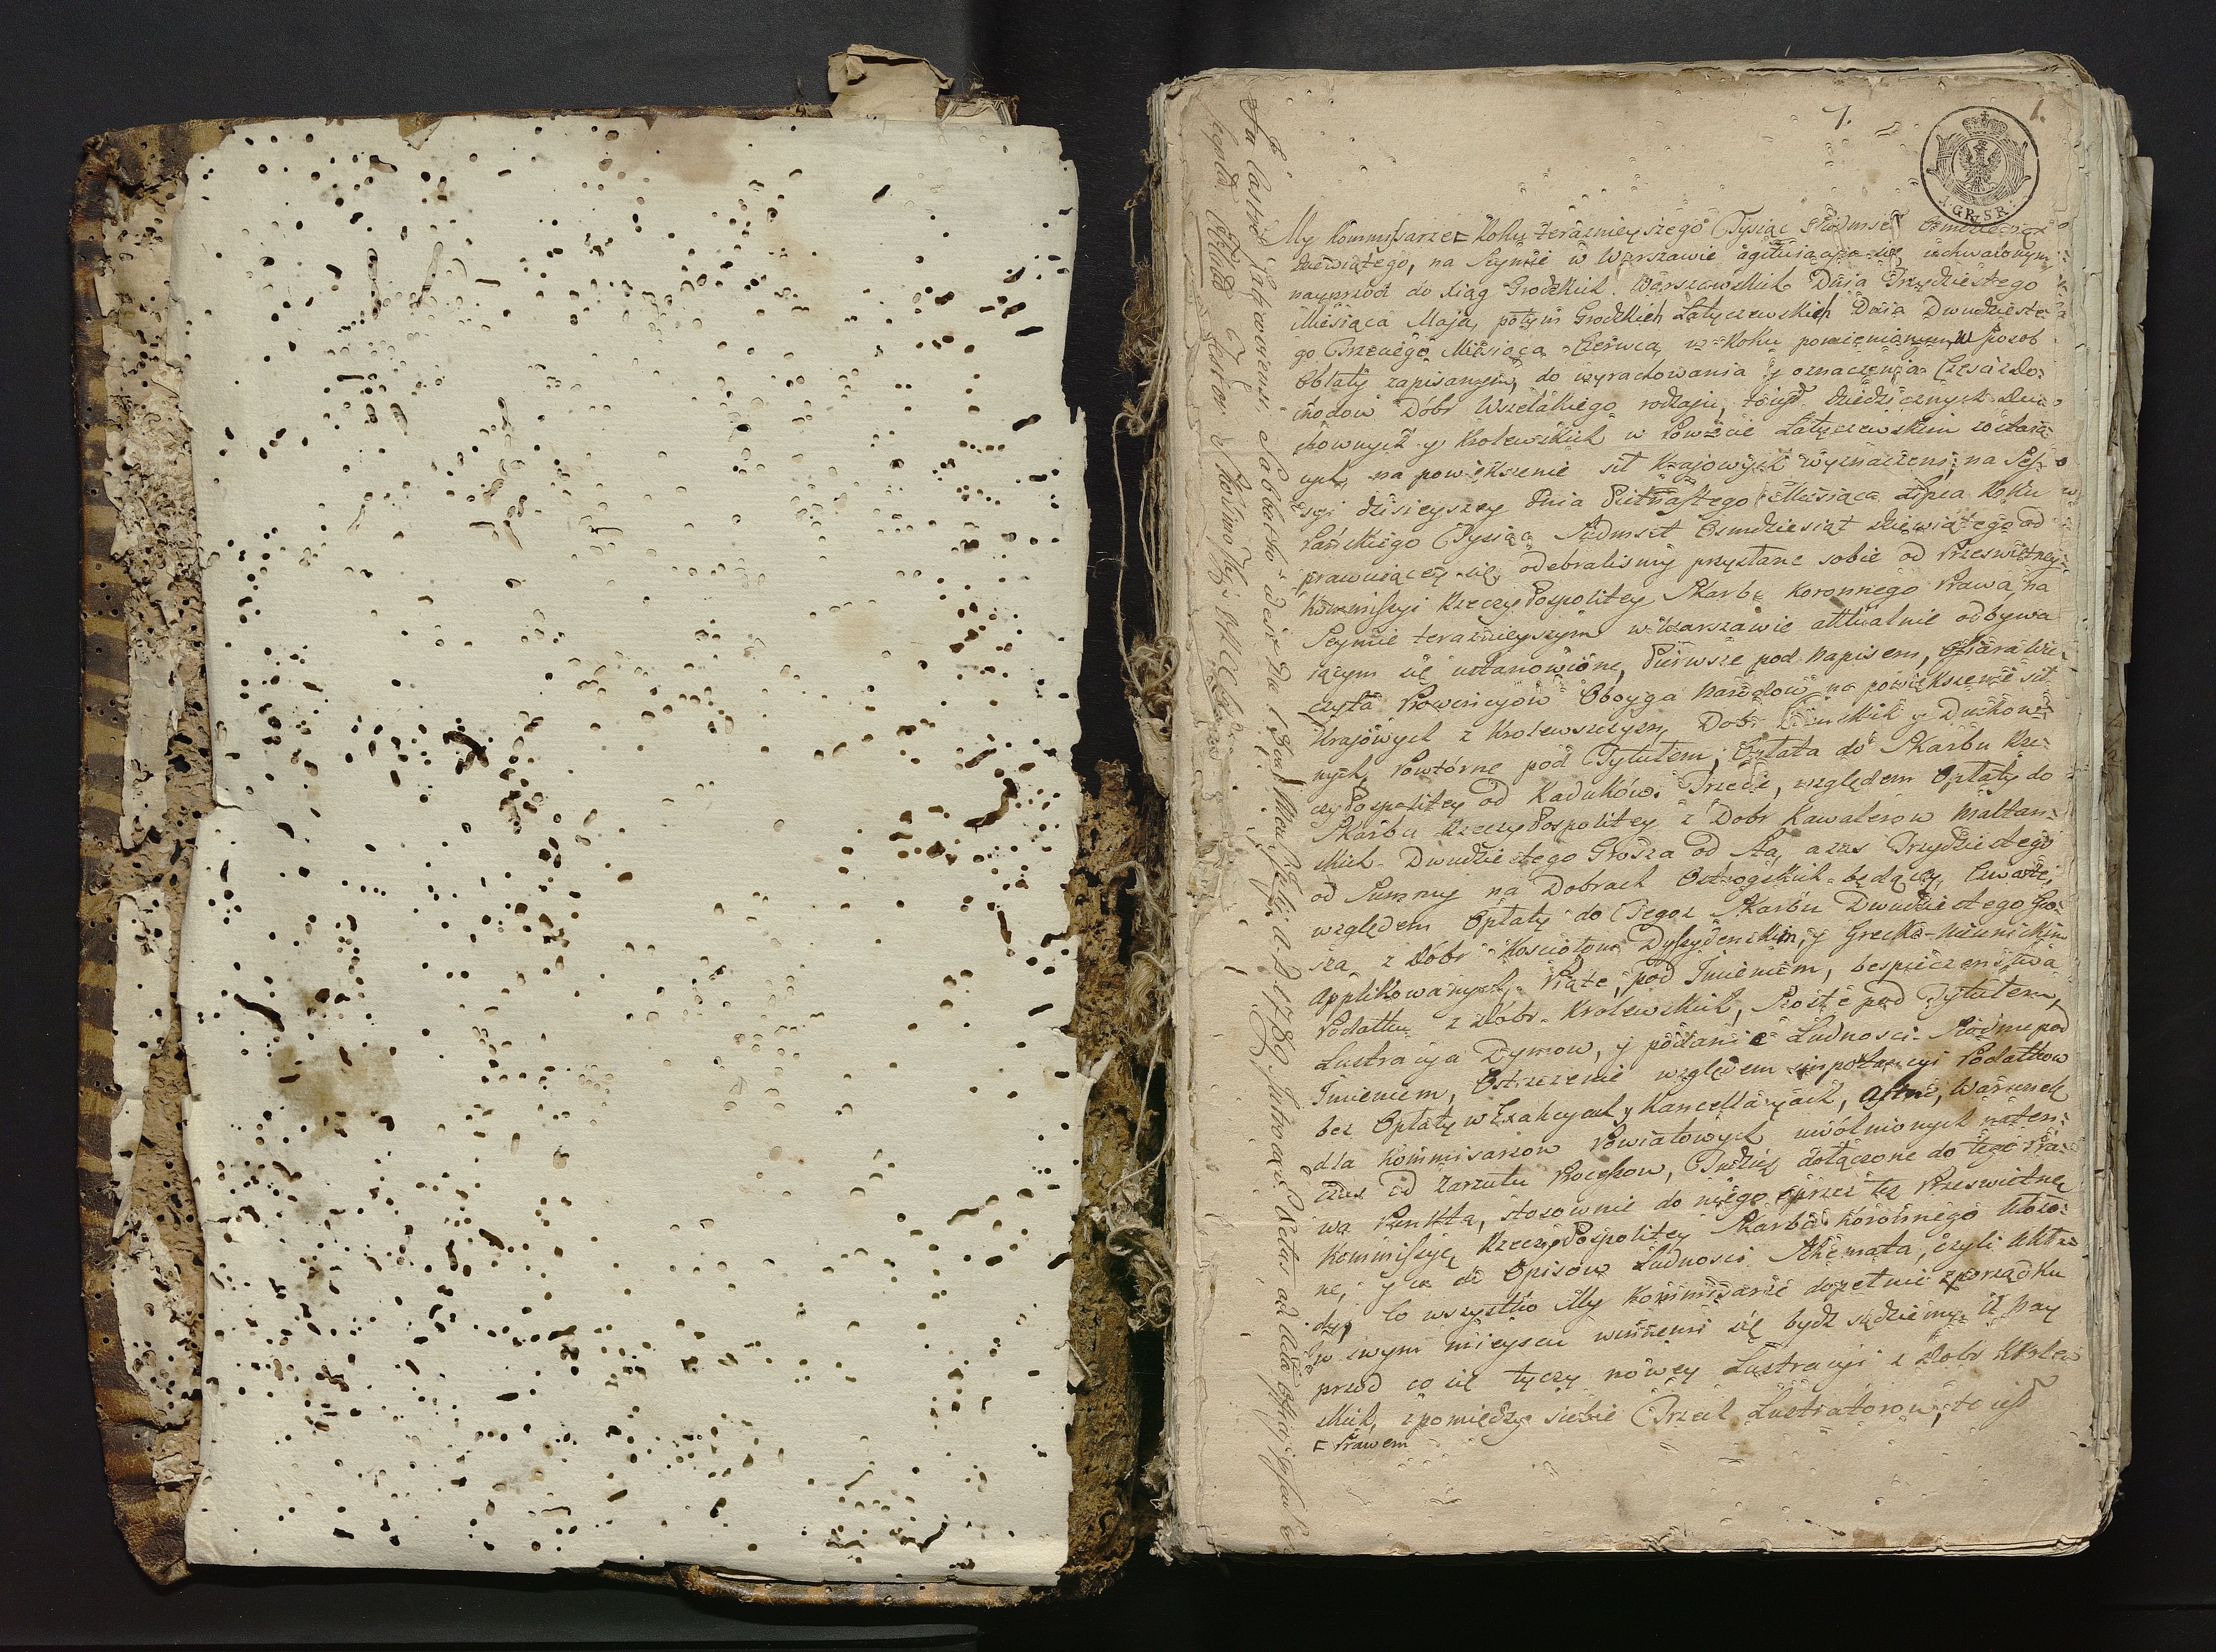 7. 1.
GR: SR:
My Kommissarze ⊏ Roku teraznieyszego Tysiąc Siedmset Osmdziesiąt
dziewiątego, na Seymie w Warszawie agituiącym się uchwalonym
nayprzod do Xiąg Grodzkich Warszawskich Dnia Trzydziestego
Miesiąca Maja, potym Grodzkich Latyczewskich Dnia Dwudzieste
go Trzeciego Miesiąca Czerwca w Roku pomienionym w sposob
Oblaty zapisanym, do wyrachowania y oznaczenia Części z Do:
chodow Dobr Wszelakiego rodzaju, to iest Dziedzicznych Du
chownych y Krolewskich w Powiecie Latyczewskim
na powiększenie sił Kraiowych wyznaczeni; na Ses:
syi dzisieyszey Dnia Pietnastego Miesiąca Lipca Roku
Pańskiego Tysiąc Siedmset Osmdziesiąt dziewiątego od
prawuiącey się, odebralismy przysłane sobie od Prześwietney
Kommissyi Rzeczy Pospolitey Skarbu Koronnego Prawa, na
Seymie teraznieyszym w Warszawie aktualnie odbywa
iącym się ustanowione, Pierwsze pod Napisem, Ofiara Wie:
czysta Prowincyow Oboyga Narodow na powiększenie sił
Kraiowych z Krolewszczyzn, Dobr Ziemskich y Duchow:
nych, Powtórne pod Tytułem, Opłata do Skarbu Rze:
czyPospolitey od Kaduków. Trzecie, względem Opłaty do
Skarbu RzeczyPospolitey z Dobr Kawalerow Maltan:
skich Dwudziestego Grosza od Sta, a zas Trzydziestego
od Summy na Dobrach Ostrogskich będącey, Czwarte,
względem Opłaty do Tegoz Skarbu Dwudziestego Gro:
sza z Dobr Kosciołom Dyssydenskim, y Grecko-Nieunickim
applikowanych, Piąte, pod Imieniem, bespieczenstwa
Podatku z Dobr Krolewskich, Szoste pod Tytułem,
Lustracya Dymow, y podanie Ludnosci. Siódme pod
Imieniem, Ostrzezenie względem importacyi Podatkow
bez Opłaty w Exakcyach y Kancellaryach, Osme, Warunek
dla Kommisarzow Powiatowych uwolnionych naten:
czas od Zarzutu Processow, Tudzież dołączone do tego Pra:
wa Punkta, stosownie do niego przez tę Prześwietną
Kommissyę RzeczyPospolitey Skarbu Koronnego ułożo:
ne, y do Opisow Ludnosci Schemata, czyli
dy, Co wszystko My Kommisarze dopełnić z porządku
w swym mieyscu winnemi się bydź sądziemy. A Nay
przod co się tyczy nowey Lustracyi z Dobr Krolew
skich, z pomiędzy siebie Trzech Lustratorow, to iest
⊏ Prawem